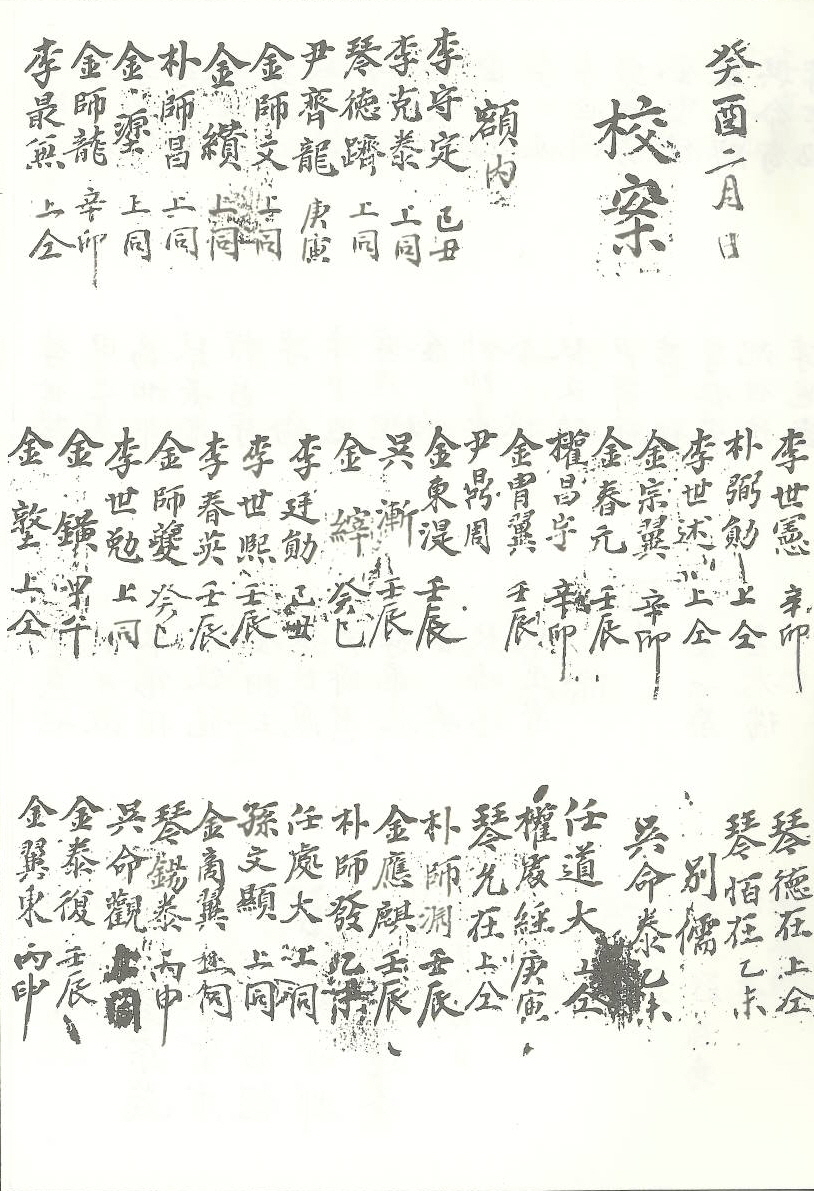 癸酉二月 日
校案
額內
李守定 己丑
李克泰 上同
琴德躋 上同
尹齊龍 庚寅
金師文 上同
金纘 上同
朴師昌 上同
金 上同
金師龍 辛卯
李最無 上仝
李世憲 辛卯
朴弼勛 上仝
李世述 上仝
金宗翼 辛卯
金春元 壬辰
權昌 辛卯
金胄翼 壬辰
尹鼎周
金東湜 壬辰
吳漸 壬辰
金縡 癸巳
李廷勛 己丑
李世熙 壬辰
李春英 壬辰
金師夔 癸巳
李世勉 上同
金鏶 甲午
金墪 上仝
琴德在 上仝
琴栢在 乙未
別儒
吳命泰 乙未
任道大 上仝
權處經 庚寅
琴允在 上仝
朴師淵 壬辰
金應麒 壬辰
朴師發 乙未
任處大 上同
孫文顯 上同
金商翼 同
琴錫泰 丙申
吳命觀 上同
金泰復 壬辰
金翼東 丙申